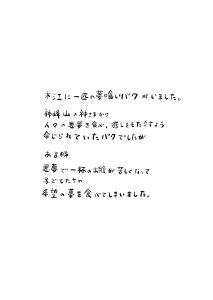 水江に一匹の夢喰いバクがいました。
神峰山の神さまから
人々の悪夢を食べ、癒しをもたらすよう
命じられていたバクでしたが
ある時
悪夢で一杯のお腹が苦しくなって
子どもたちの
希望の夢を食べてしまいました。